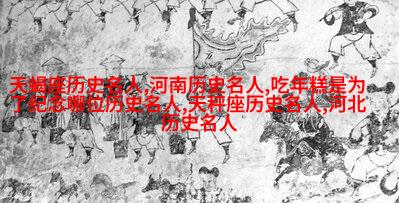 天蝎座历史名人,河南历史名人,吃年糕是为
了纪念哪位历史名人,天秤座历史名人,河北
历史名人